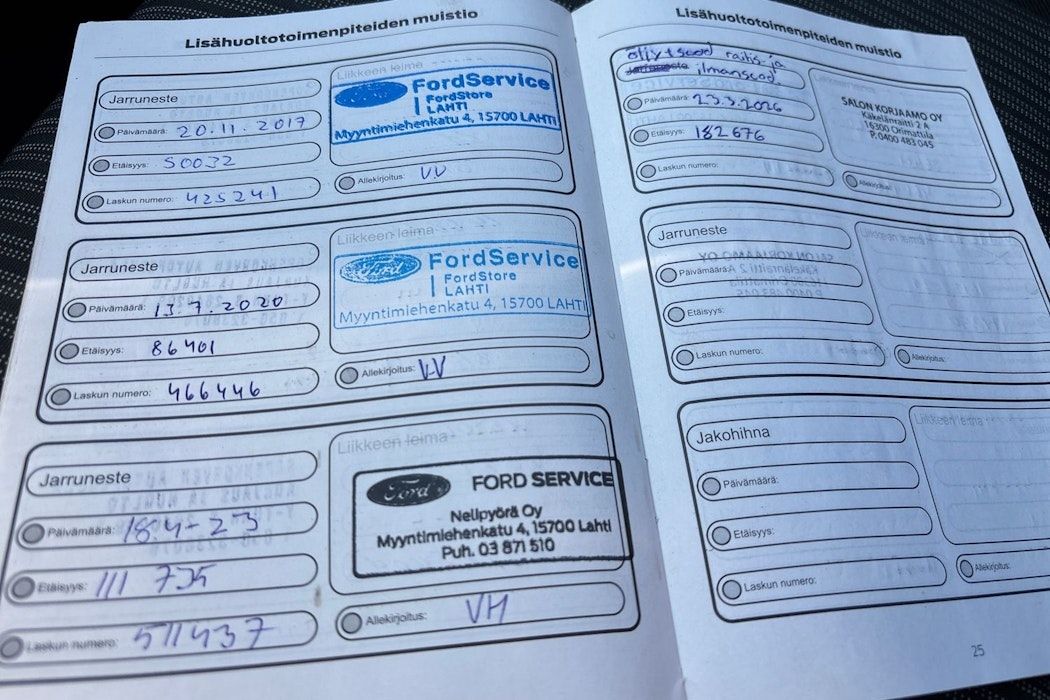 Lisähuoltotoimenpiteiden muistio
Jarruneste
Päivämäärä: 20.11.2017
Etäisyys: 50032
Laskun numero: 425241
Liikkeen leima
FordService
FordStore
LAHTI
Myyntimiehenkatu 4, 15700 LAHTI
Allekirjoitus: VV
Jarruneste
Päivämäärä: 13.7.2020
Etäisyys: 86401
Laskun numero: 466446
Liikkeen leima
Ford
FordService
FordStore
LAHTI
Myyntimiehenkatu 4, 15700 LAHTI
Allekirjoitus: VV
Jarruneste
Päivämäärä: 18.4-23
Etäisyys: 111 735
Laskun numero: 511437
Liikkeen leima
Ford FORD SERVICE
Nelipyörä Oy
Myyntimiehenkatu 4, 15700 Lahti
Puh. 03 871 510
Allekirjoitus: VH
Lisähuoltotoimenpiteiden muistio
öljy+suod raitis-ja
Jarruneste ilmansuod
Päivämäärä: 23.3.2026
Etäisyys: 182676
Laskun numero:
SALON KORJAAMO OY
Käkelänraitti 2 A
16300 Orimattila
P. 0400 483 045
Allekirjoitus:
Jarruneste
Päivämäärä:
Etäisyys:
Laskun numero:
Liikkeen leima
Allekirjoitus:
Jakohihna
Päivämäärä:
Etäisyys:
Laskun numero:
Liikkeen leima
Allekirjoitus:
25